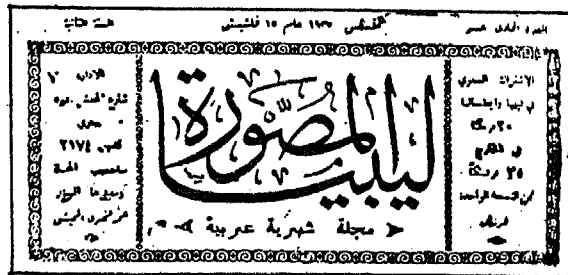 العدد الحادي عشر
أغسطس ١٩٣٧ عام ١٥ فاشيستي
السنة الثانية
الاشتراك السنوي
في ليبيا وايطاليا
٢٠ فرنكا
في الخارج
٣٥ فرنكاً
ثمن النسخة الواحدة
فرنكان
ليبيا المصورة
مجلة شهرية عربية
الادارة
شارع
نمرة
تلفون ٢١٧٤
صاحب المجلة
ومديرها المسؤول